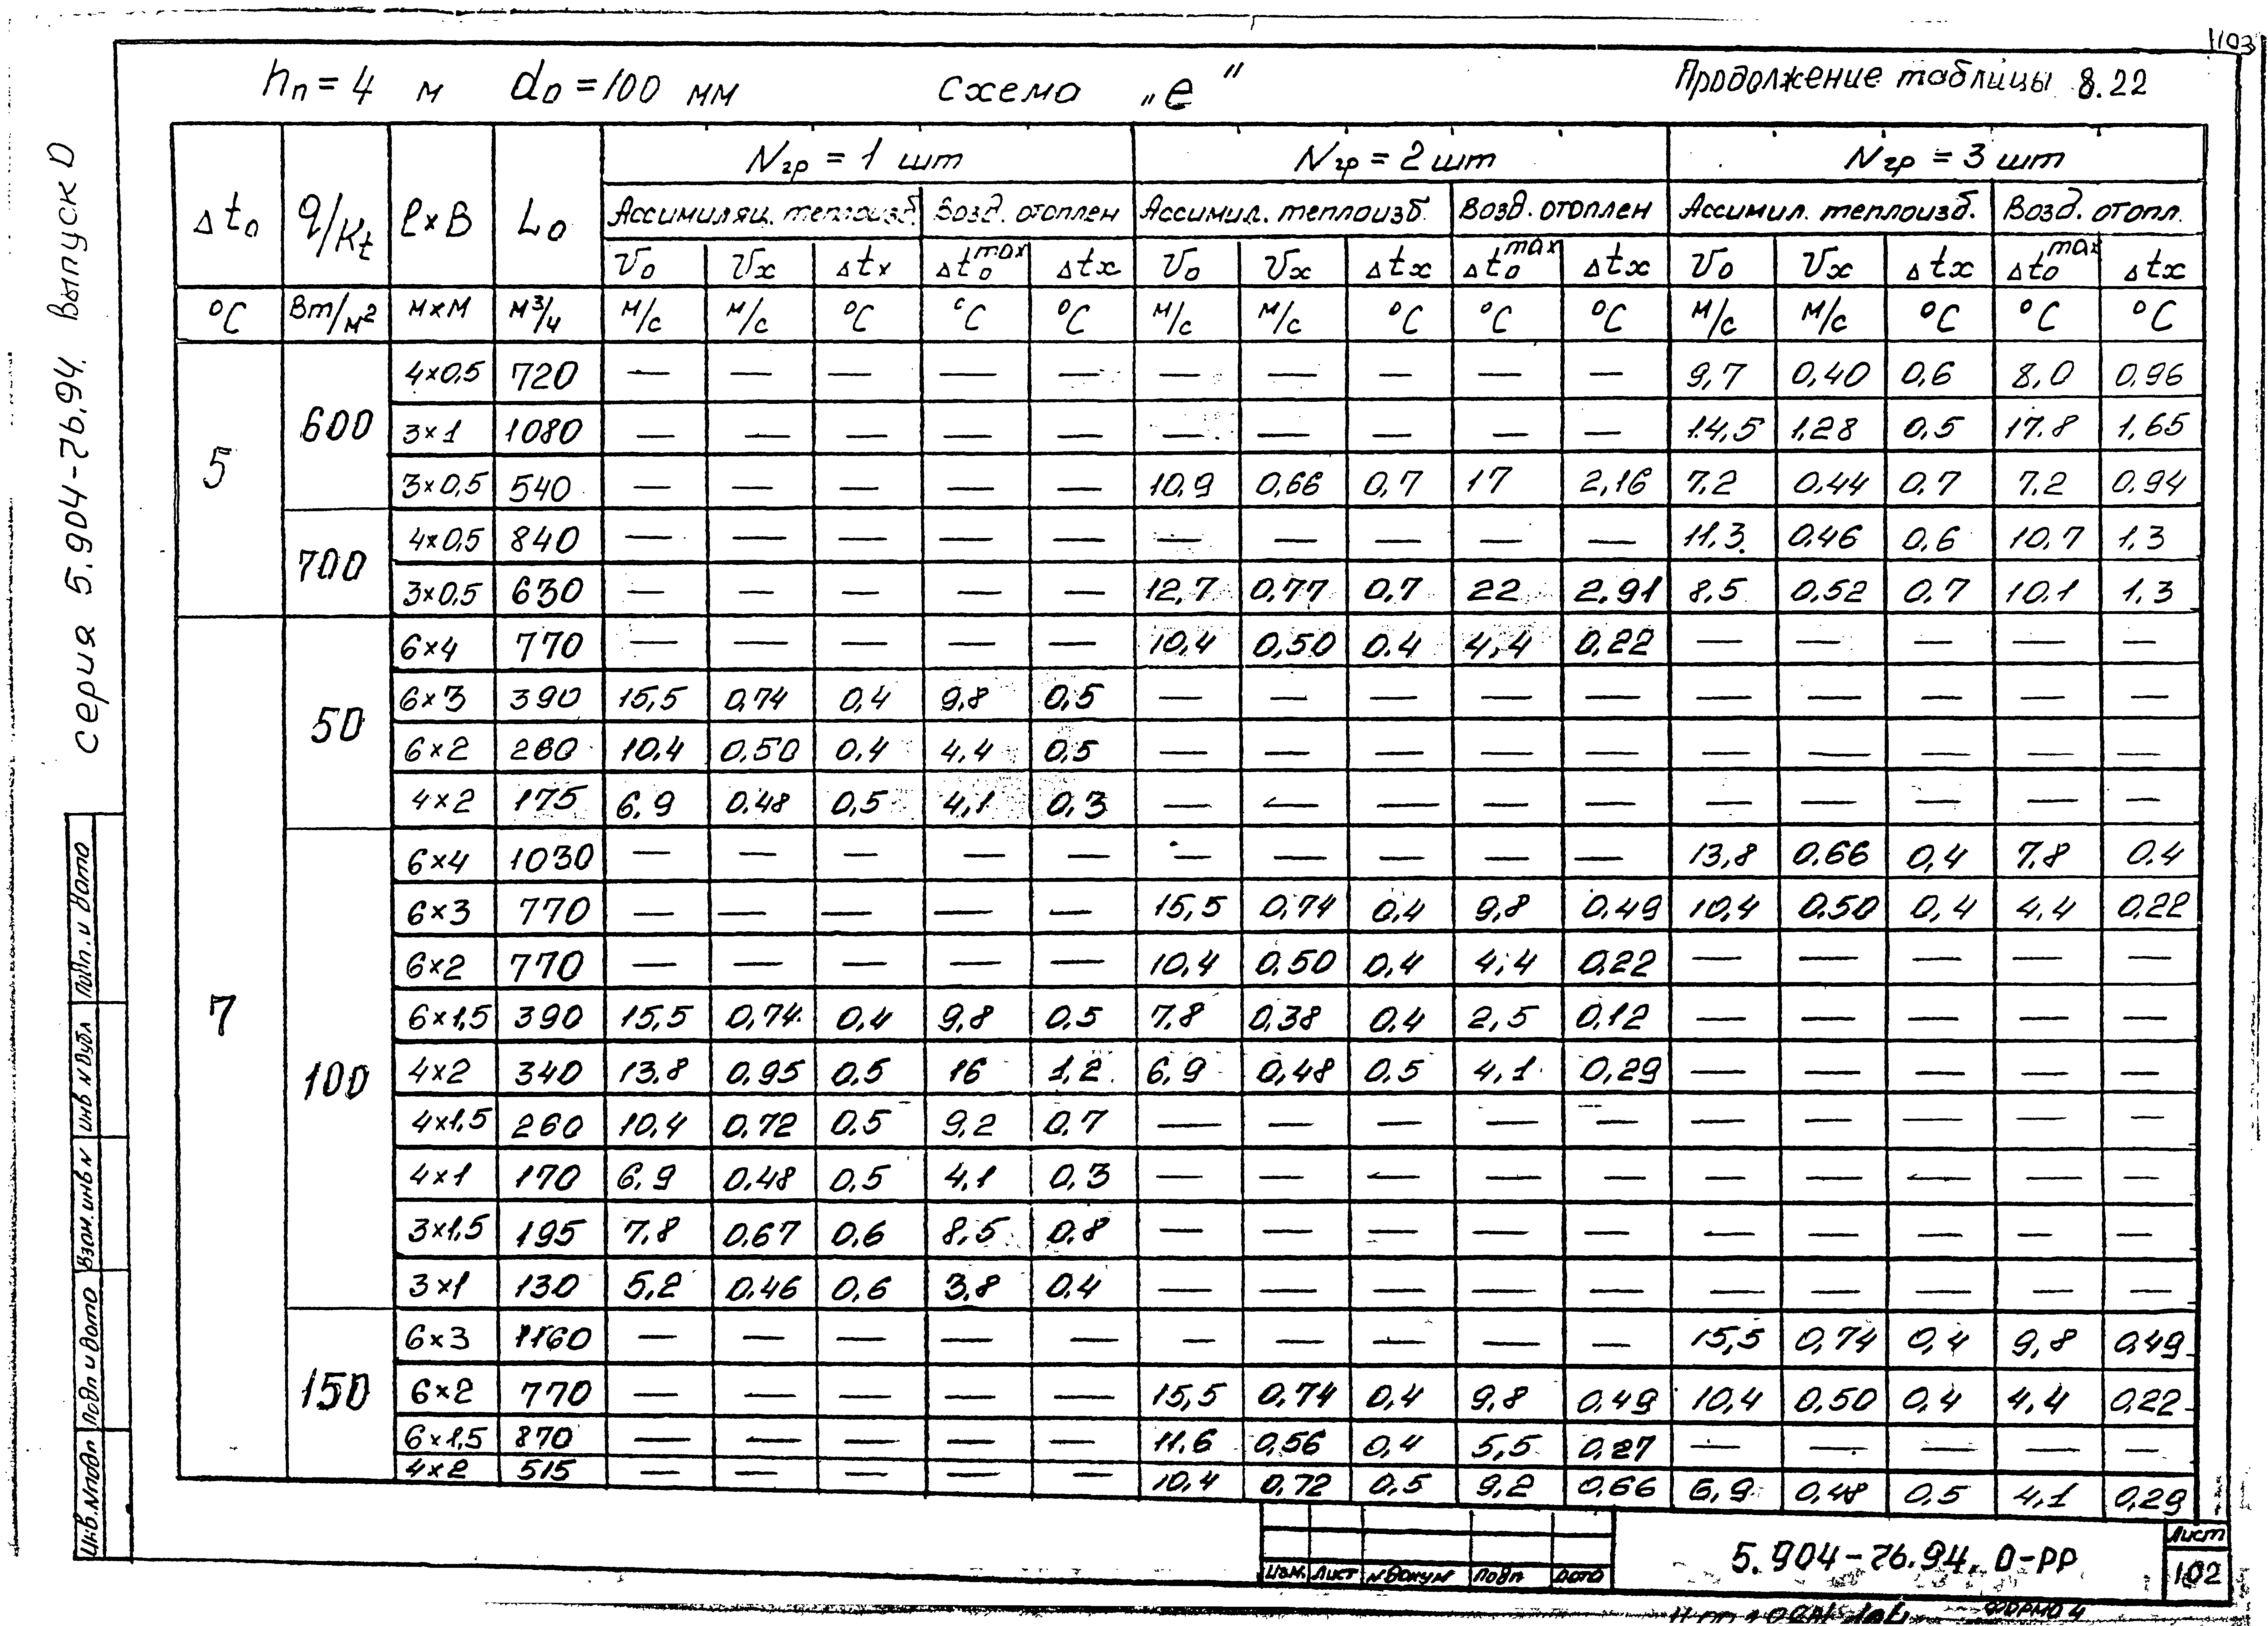 103
hп = 4 м d₀ = 100 мм схема „е“ Продолжение таблицы 8.22
серия 5.904-76.94. Выпуск 0
Δt₀ q/Kt ℓ×B L₀ Nгр = 1 шт Nгр = 2 шт Nгр = 3 шт
Ассимиляц. теплоизб. Возд. отоплен Ассимил. теплоизб. Возд. отоплен Ассимил. теплоизб. Возд. отопл.
V₀ Vx Δtx Δt₀max Δtx V₀ Vx Δtx Δt₀max Δtx V₀ Vx Δtx Δt₀max Δtx
°C Вт/м² м×м м³/ч м/с м/с °C °C °C м/с м/с °C °C °C м/с м/с °C °C °C
5 600 4×0,5 720 — — — — — — — — — — 9,7 0,40 0,6 8,0 0,96
3×1 1080 — — — — — — — — — — 14,5 1,28 0,5 17.8 1,65
3×0,5 540 — — — — — 10,9 0,66 0,7 17 2,16 7.2 0.44 0.7 7.2 0.94
700 4×0,5 840 — — — — — — — — — — 11.3 0,46 0,6 10,7 1,3
3×0,5 630 — — — — — 12,7 0,77 0,7 22 2,91 8,5 0,52 0,7 10.1 1.3
7 50 6×4 770 — — — — — 10,4 0,50 0.4 4,4 0,22 — — — — —
6×3 390 15,5 0,74 0,4 9,8 0,5 — — — — — — — — — —
6×2 260 10,4 0,50 0,4 4,4 0,5 — — — — — — — — — —
4×2 175 6,9 0,48 0,5 4,1 0,3 — — — — — — — — — —
100 6×4 1030 — — — — — — — — — — 13,8 0,66 0,4 7,8 0.4
6×3 770 — — — — — 15,5 0,74 0,4 9,8 0,49 10,4 0.50 0,4 4,4 0,22
6×2 770 — — — — — 10,4 0,50 0,4 4,4 0,22 — — — — —
6×1,5 390 15,5 0,74 0,4 9,8 0,5 7,8 0,38 0,4 2,5 0,12 — — — — —
4×2 340 13,8 0,95 0,5 16 1,2 6,9 0,48 0,5 4,1 0,29 — — — — —
4×1,5 260 10,4 0,72 0,5 9,2 0,7 — — — — — — — — — —
4×1 170 6,9 0,48 0,5 4,1 0,3 — — — — — — — — — —
3×1,5 195 7,8 0,67 0,6 8,5 0,8 — — — — — — — — — —
3×1 130 5,2 0,46 0,6 3,8 0,4 — — — — — — — — — —
150 6×3 1160 — — — — — — — — — — 15,5 0,74 0,4 9,8 0,49
6×2 770 — — — — — 15,5 0,74 0,4 9,8 0,49 10,4 0,50 0,4 4,4 0,22
6×1,5 870 — — — — — 11,6 0,56 0,4 5,5 0,27 — — — — —
4×2 515 — — — — — 10,4 0,72 0,5 9,2 0,66 6,9 0,48 0,5 4,1 0,29
Подп. и дата
инв N дубл
Взам. инв N
Подп и дата
Инв. N подл
Изм. Лист N докум Подп Дата
5.904-76.94. 0-РР
Лист
102
формат 4